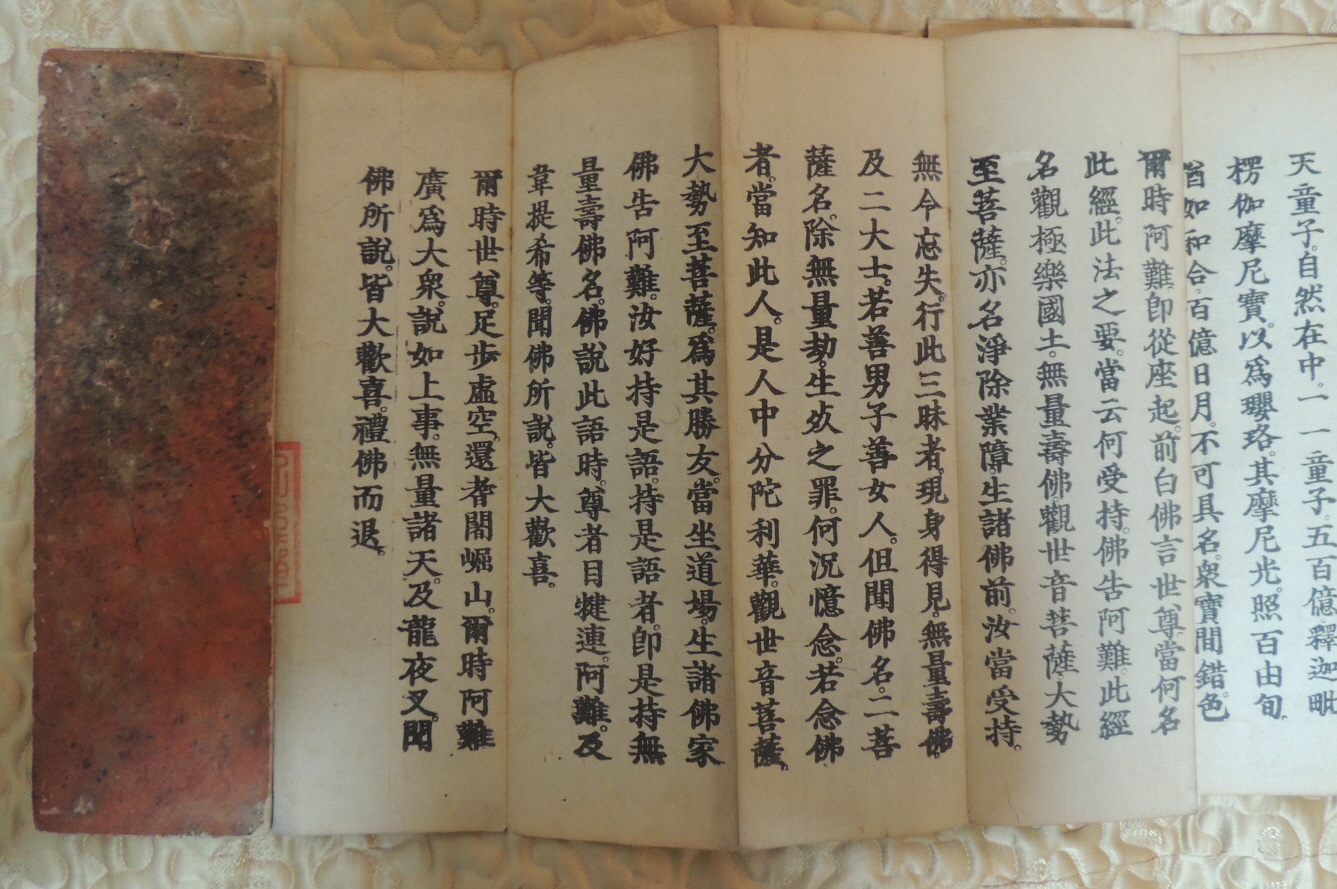 天童子。自然在中。一一童子。五百億釋迦毗
楞伽摩尼寶。以爲瓔珞。其摩尼光。照百由旬。
猶如和合。百億日月。不可具名。衆寶間錯。色
爾時阿難。即從座起。前白佛言。世尊。當何名
此經。此法之要。當云何受持。佛告阿難。此經
名觀極樂國土。無量壽佛。觀世音菩薩。大勢
至菩薩。亦名淨除業障。生諸佛前。汝當受持。
無令忘失。行此三昧者。現身得見。無量壽佛。
及二大士。若善男子善女人。但聞佛名。二菩
薩名。除無量劫。生死之罪。何況憶念。若念佛
者。當知此人。是人中分陀利華。觀世音菩薩。
大勢至菩薩。爲其勝友。當坐道場。生諸佛家
佛告阿難。汝好持是語。持是語者。卽是持無
量壽佛名。佛說此語時。尊者目犍連。阿難。及
韋提希等。聞佛所說。皆大歡喜。
爾時世尊。足步虛空。還耆闍崛山。爾時阿難
廣爲大衆。說如上事。無量諸天。及龍夜叉。聞
佛所說。皆大歡喜。禮佛而退。